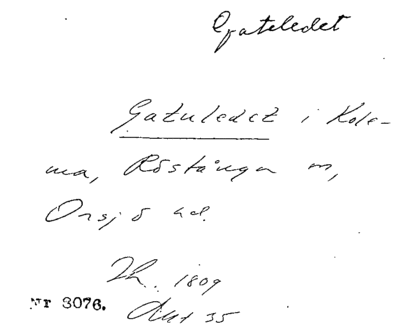 Gateledet
Gatuledet i Kols-
ma, Röstånga sn,
Onsjö hd.
Lh. 1809
Nr 3076.
Akt 35